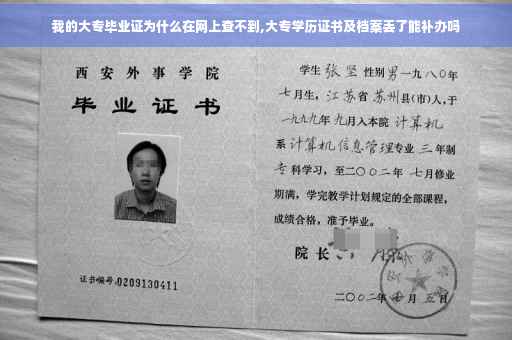 我的大专毕业证为什么在网上查不到,大专学历证书及档案丢了能补办吗
西安外事学院
毕业证书
证书编号:0209130411
学生 张坚 性别 男 一九八〇年
七月生，江苏省 苏州县(市)人,于
一九九九年 九月入本院 计算机
系 计算机信息管理专业 三 年制
专 科学习，至二〇〇二年 七月修业
期满，学完教学计划规定的全部课程，
成绩合格，准予毕业。
院长
二〇〇二年 七月 五日